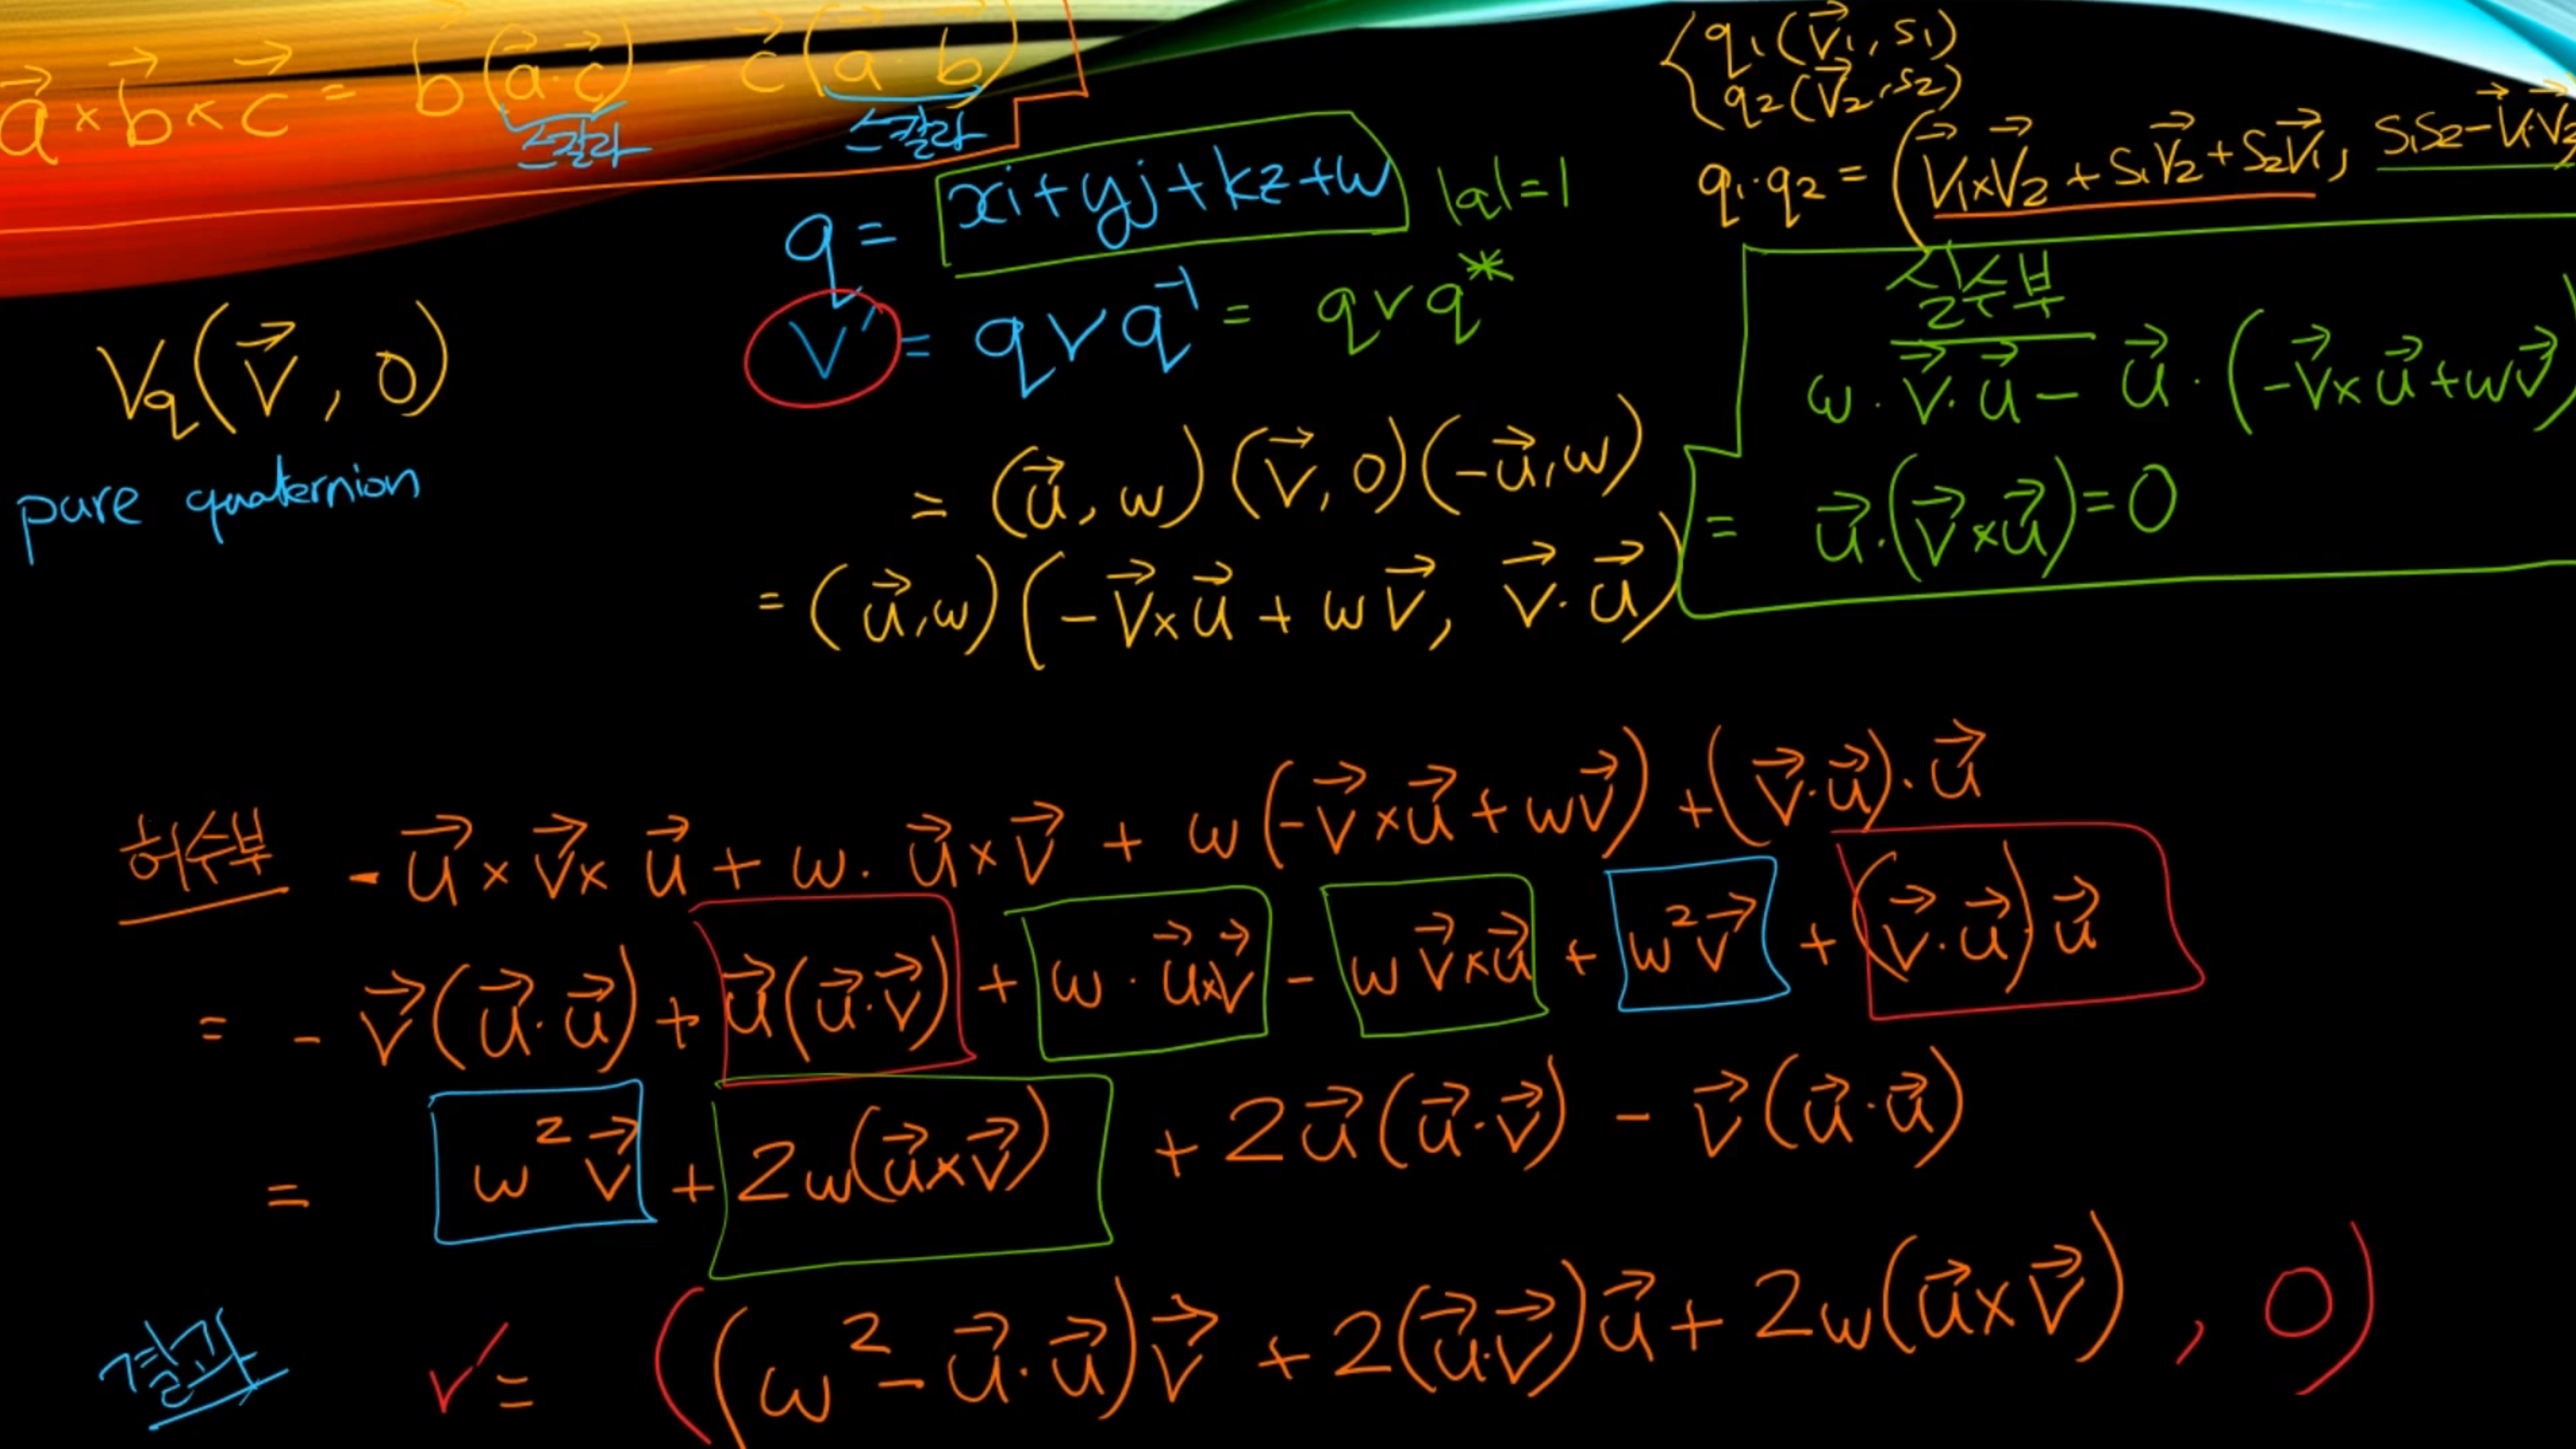 a⃗ × b⃗ × c⃗ = b⃗(a⃗·c⃗) - c⃗(a⃗·b⃗)
스칼라 스칼라
q₁(v⃗₁, s₁)
q₂(v⃗₂, s₂)
q₁·q₂ = (v⃗₁×v⃗₂ + s₁v⃗₂ + s₂v⃗₁, s₁s₂-v⃗₁·v⃗₂
q = xi+yj+kz+w |q|=1
V_q(v⃗, 0)
pure quaternion
v′ = q v q⁻¹ = q v q*
= (u⃗, w)(v⃗, 0)(-u⃗, w)
= (u⃗, w)(-v⃗×u⃗ + wv⃗, v⃗·u⃗)
실수부
w·v⃗·u⃗ - u⃗·(-v⃗×u⃗+wv⃗)
= u⃗·(v⃗×u⃗)=0
허수부 -u⃗×v⃗×u⃗ + w·u⃗×v⃗ + w(-v⃗×u⃗+wv⃗) + (v⃗·u⃗)·u⃗
= -v⃗(u⃗·u⃗) + u⃗(u⃗·v⃗) + w·u⃗×v⃗ - wv⃗×u⃗ + w²v⃗ + (v⃗·u⃗)u⃗
= w²v⃗ + 2w(u⃗×v⃗) + 2u⃗(u⃗·v⃗) - v⃗(u⃗·u⃗)
결과 v′ = ((w²-u⃗·u⃗)v⃗ + 2(u⃗·v⃗)u⃗ + 2w(u⃗×v⃗), 0)